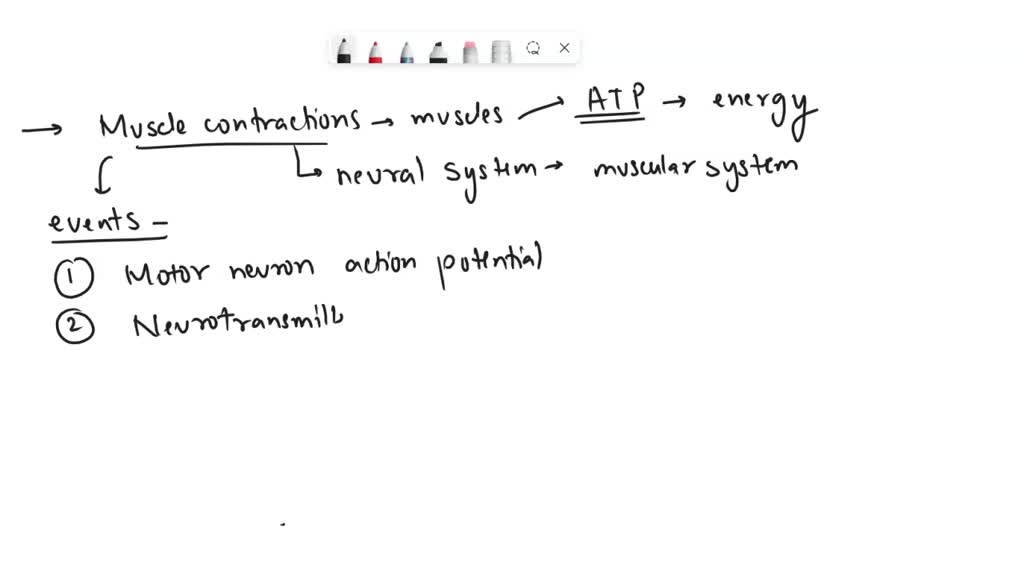 → Muscle contractions → muscles → ATP → energy
↳ neural system → muscular system
events –
① Motor neuron action potential
② Neurotransmitt